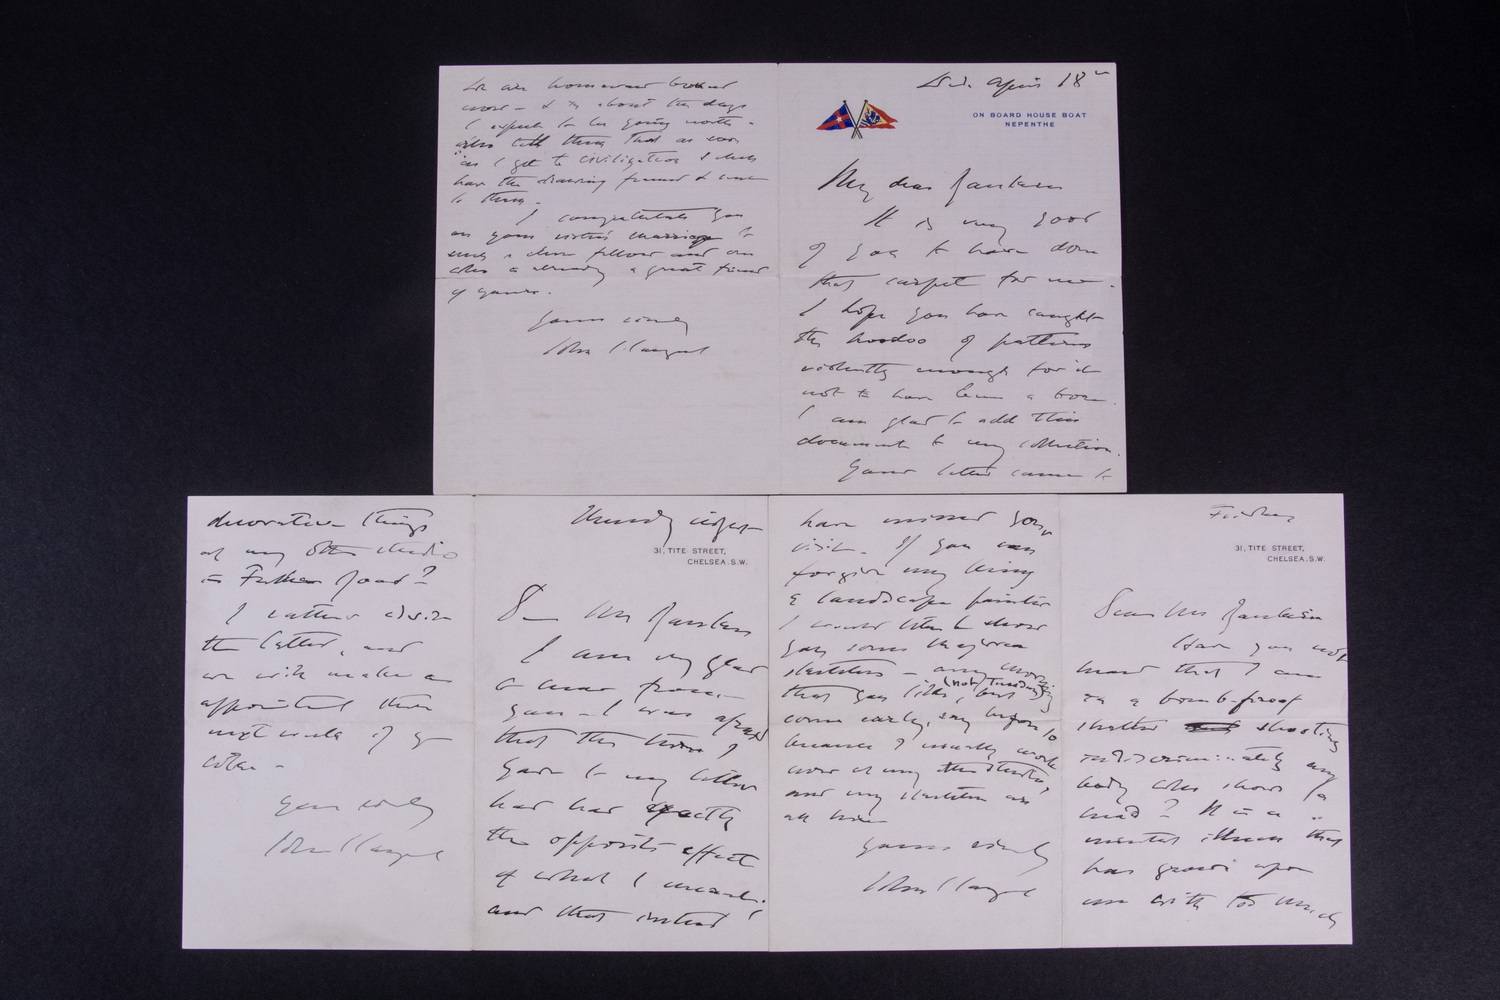 Wed. April 18th
ON BOARD HOUSE BOAT
NEPENTHE
My dear
It is very good
of you to have done
that carpet for me.
I hope you have caught
the hoodoo of patterns
violently enough for it
not to have been a bore.
I am glad to add this
document to my collection.
Your letter came to
We are homeward bound
now - & in about ten days
I expect to be going north -
also tell them that as soon
as I get to civilization I shall
have the drawing framed &
to them.
I congratulate you
on your sister's marriage to
such a fellow and one
who is already a great friend
of yours.
Yours sincerely
John S. Sargent
Friday
31, TITE STREET,
CHELSEA. S.W.
Dear Mr
Have you not
heard that I am
in a bomb-proof
shelter shooting
indiscriminately any
body who shows a
head? It is a
mental illness that
has grown upon
me with too much
31, TITE STREET,
CHELSEA. S.W.
Dear Mr
I am very glad
to hear from
you - I was afraid
that the tenor of
your to my letter
had had exactly
the opposite effect
of what I meant.
and that instead
have missed your
visit. If you can
forgive my being
a landscape painter
I would like to show
you some Majorca
sketches - any morning
that you like, (not Tuesday) but
come early, say before 10
because I usually work
now at my other studio,
and my sketches are
all here
Yours sincerely
John S Sargent
decorative things
at my other studio
in Fulham Road?
I rather advise
the latter, and
we will make an
appointment then
next week if you
like -
Yours sincerely
John S Sargent